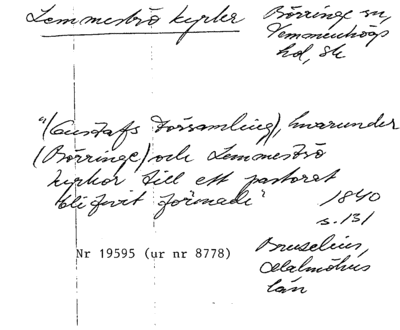 Lemmeströ kyrka
Börringe sn,
Vemmenhögs
hd, Sk
"(Gustafs Församling), hvarunder
(Börringe) och Lemmeströ
kyrkor till ett pastorat
blifvit förenade"
1840
s. 131
Bruselius,
Malmöhus
län
Nr 19595 (ur nr 8778)